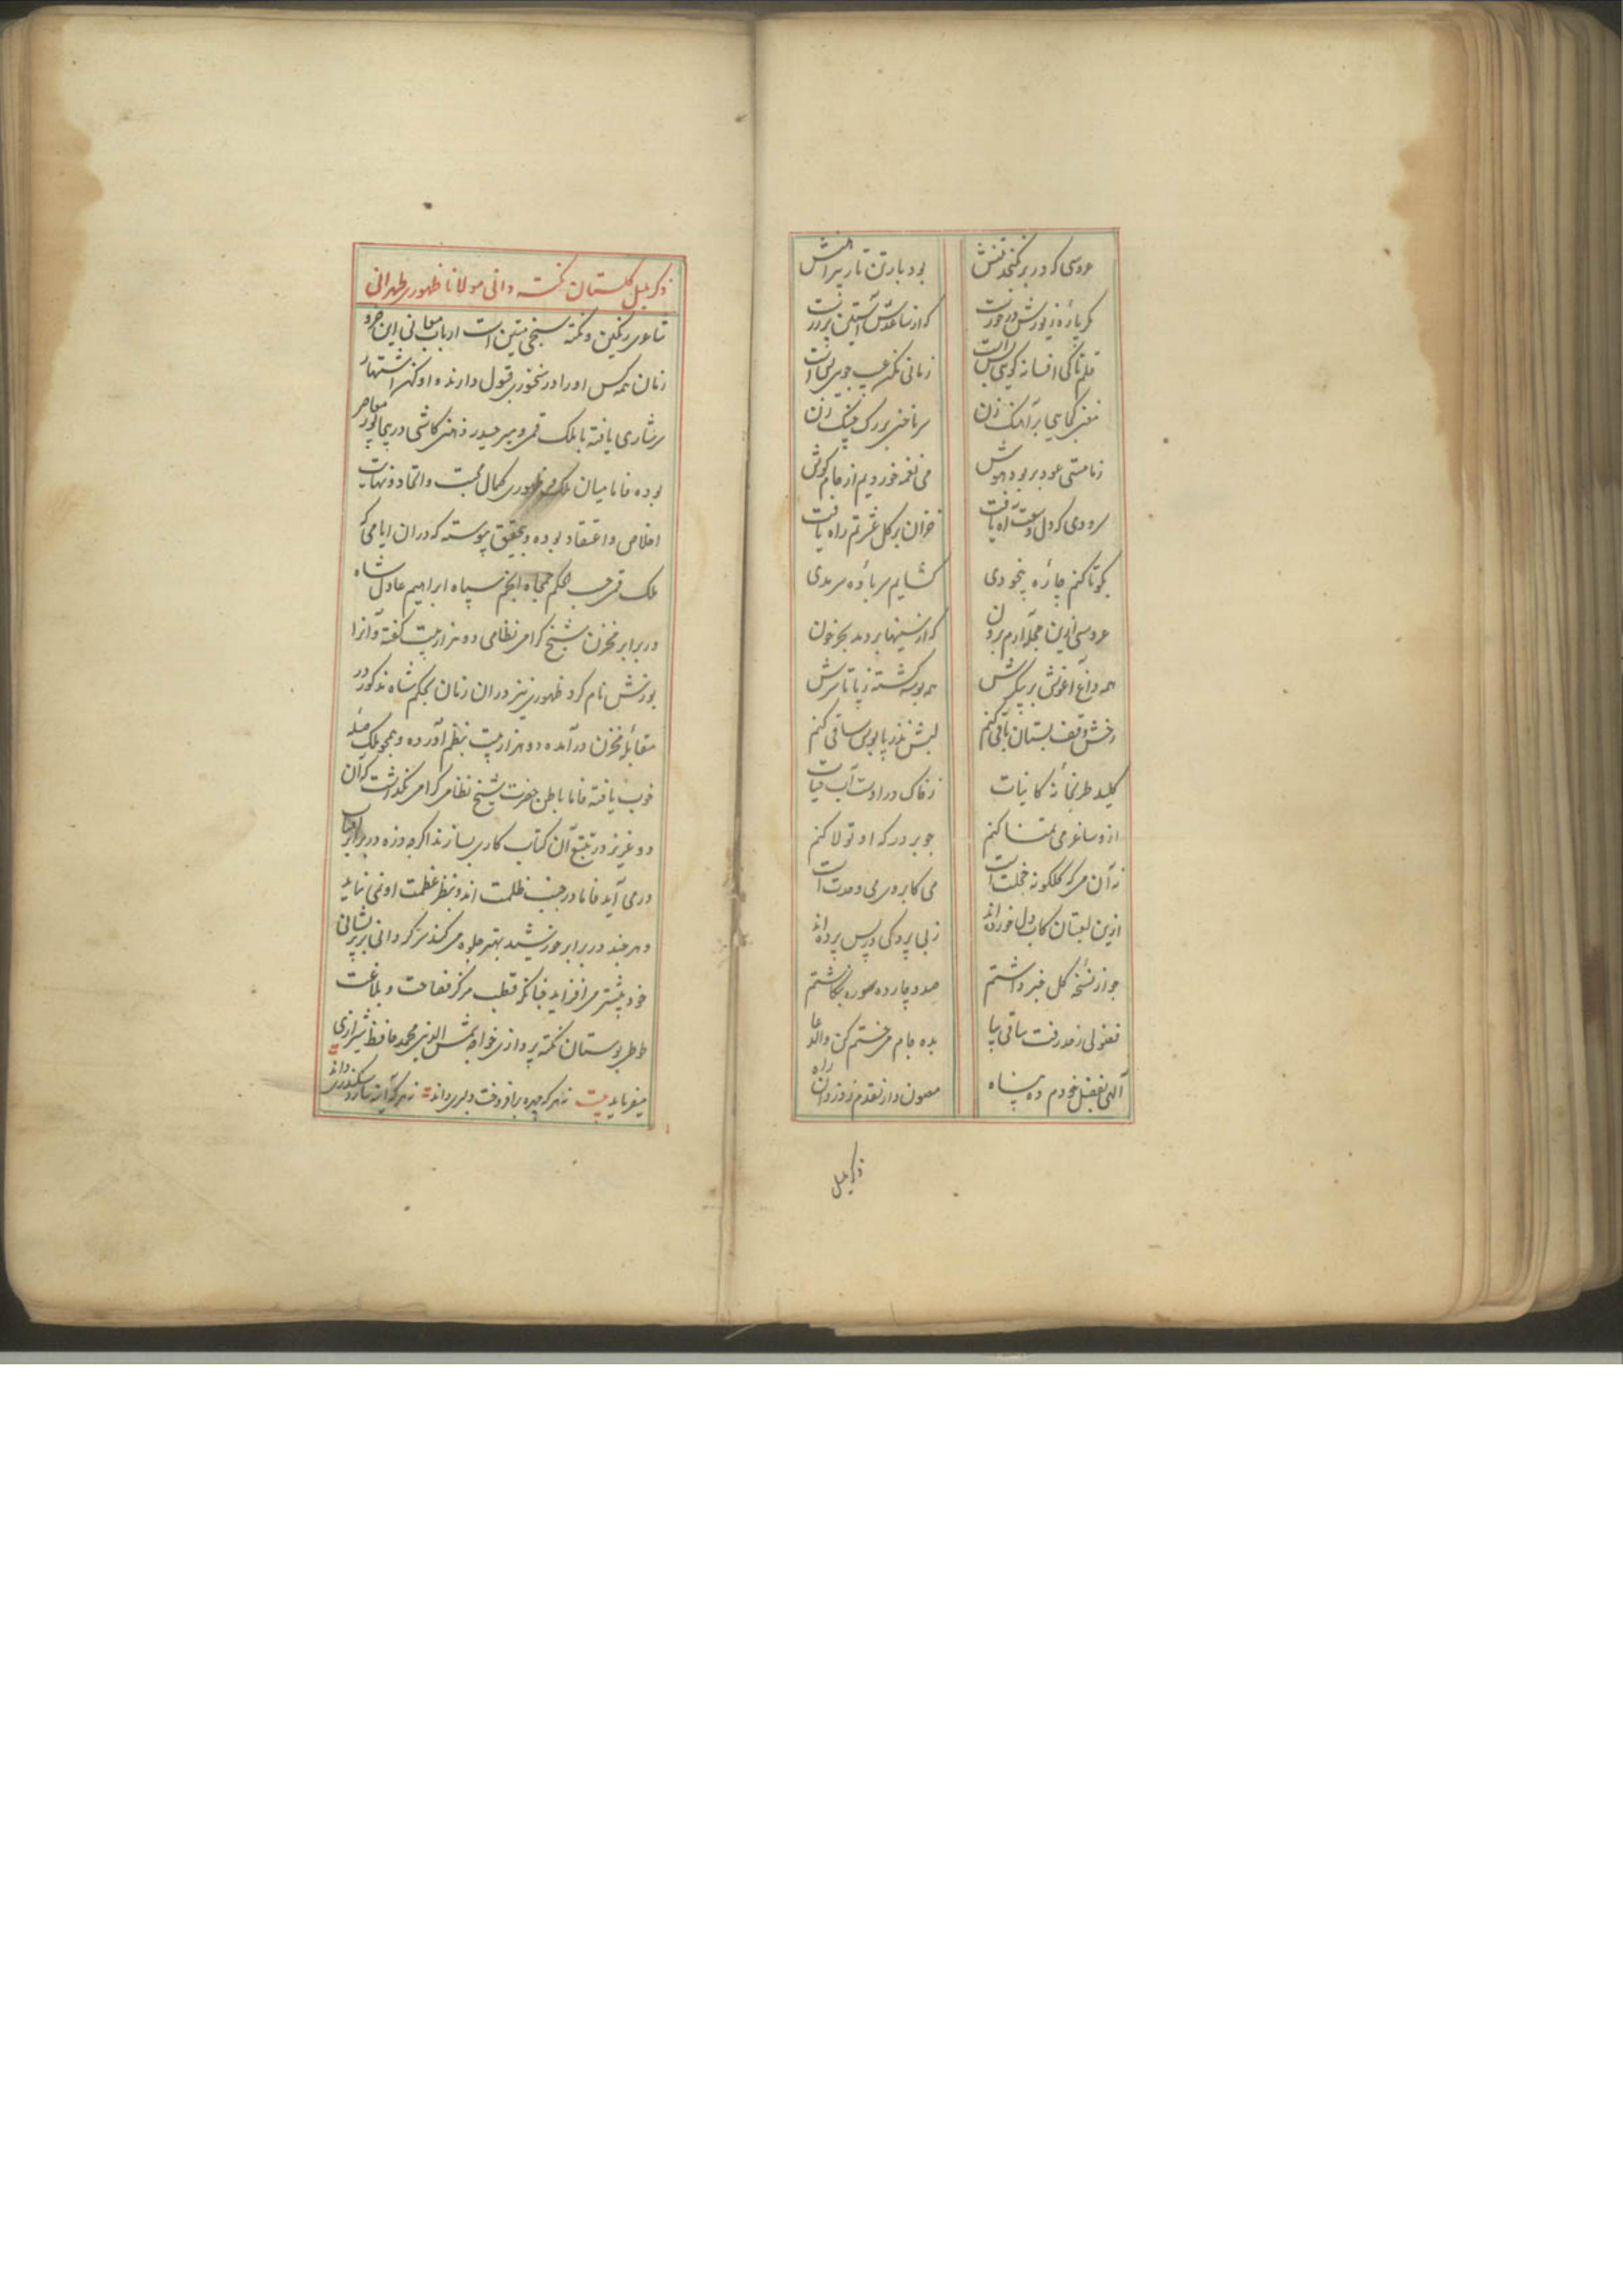 عروسی که در بر نگنجد تنش بود بار تن تار پیراهنش
که از ساعدش آستین
قلم تا کی افسانه گویی بس است زمانی مکن عیب جویی بس است
مغنی کجایی بر آهنگ زن سر ناخنی بر رگ چنگ زن
زمستی عود بربود هوش می نغمه خوردیم از جام گوش
سرودی که دل راه یافت خزان بر گل عشرتم راه یافت
بگو تا کنم چارهٔ بیخودی گشایم سر بادهٔ سرمدی
عروسی ازین حجله آرم برون که از سینها بر دمد بحر خون
همه داغ آغوش بر پیکرش همه بوسه گشته ز پا تا سرش
رخش وقف بستان باقی کنم لبش نذر پابوس ساقی کنم
کلید طربخانهٔ کاینات ز خاک در اوست آب حیات
ازو ساغر می تمنا کنم چو بر درگه او تولا کنم
نه آن می که گلگونهٔ خجلت است می کابروی می وحدت است
ازین لعبتان کاب دل خورده‌اند ز بی پردگی در پس پرده‌اند
چو از نسخهٔ گل خبر داشتم صد و چارده سوره بگاشتم
فضولی ز حد رفت ساقی بیا بده جام می ختم کن والدعا
الهی بفضل خودم ده پناه مصون دار نقدم ز دزدان راه
ذکر بلبل
ذکر بلبل گلستان نکته دانی مولانا ظهوری طهرانی
شاعری رنگین و نکته سنجی متین است ارباب معانی این جزو
زمان همه کس او را در سخنوری قبول دارند و او کمر اشتهار
سرشاری یافته با ملک قمی و میر حیدر ذهنی کاشی در بیجاپور معاصر
بوده فاما میان ملک و ظهوری کمال محبت و اتحاد و نهایت
اخلاص و اعتقاد بوده و بتحقیق پیوسته که در ان ایامی که
ملک قمی حسب الحکم جمجاه انجم سپاه ابراهیم عادل شاه
در برابر مخزن شیخ گرامی نظامی دو هزار بیت گفته و آنرا
بورنش نام کرد ظهوری نیز در ان زمان بحکم شاه مذکور در
مقابلهٔ مخزن درآمده دو هزار بیت بنظم آورده و همچو ملک صله
خوب یافته فاما باطن حضرت شیخ نظامی گرامی نگذاشت که آن
دو عزیز در تتبع آن کتاب کاری بسازند اگرچه ذره در برابر آفتاب
درمی آید فاما در جنب ظلمت اند و بنظر عظمت او نمی نماید
و هرچند در برابر خورشید بهتر جلوه می کند سرگردانی بر پریشانی
خود بیشتر می افزاید چنانکه قطب مرکز فصاحت و بلاغت
طوطی بوستان نکته پردازی خواجه شمس الدین محمد حافظ شیرازی
میفرماید بیت نه هر که چهره برافروخت دلبری داند نه هر که آینه سازد سکندری داند